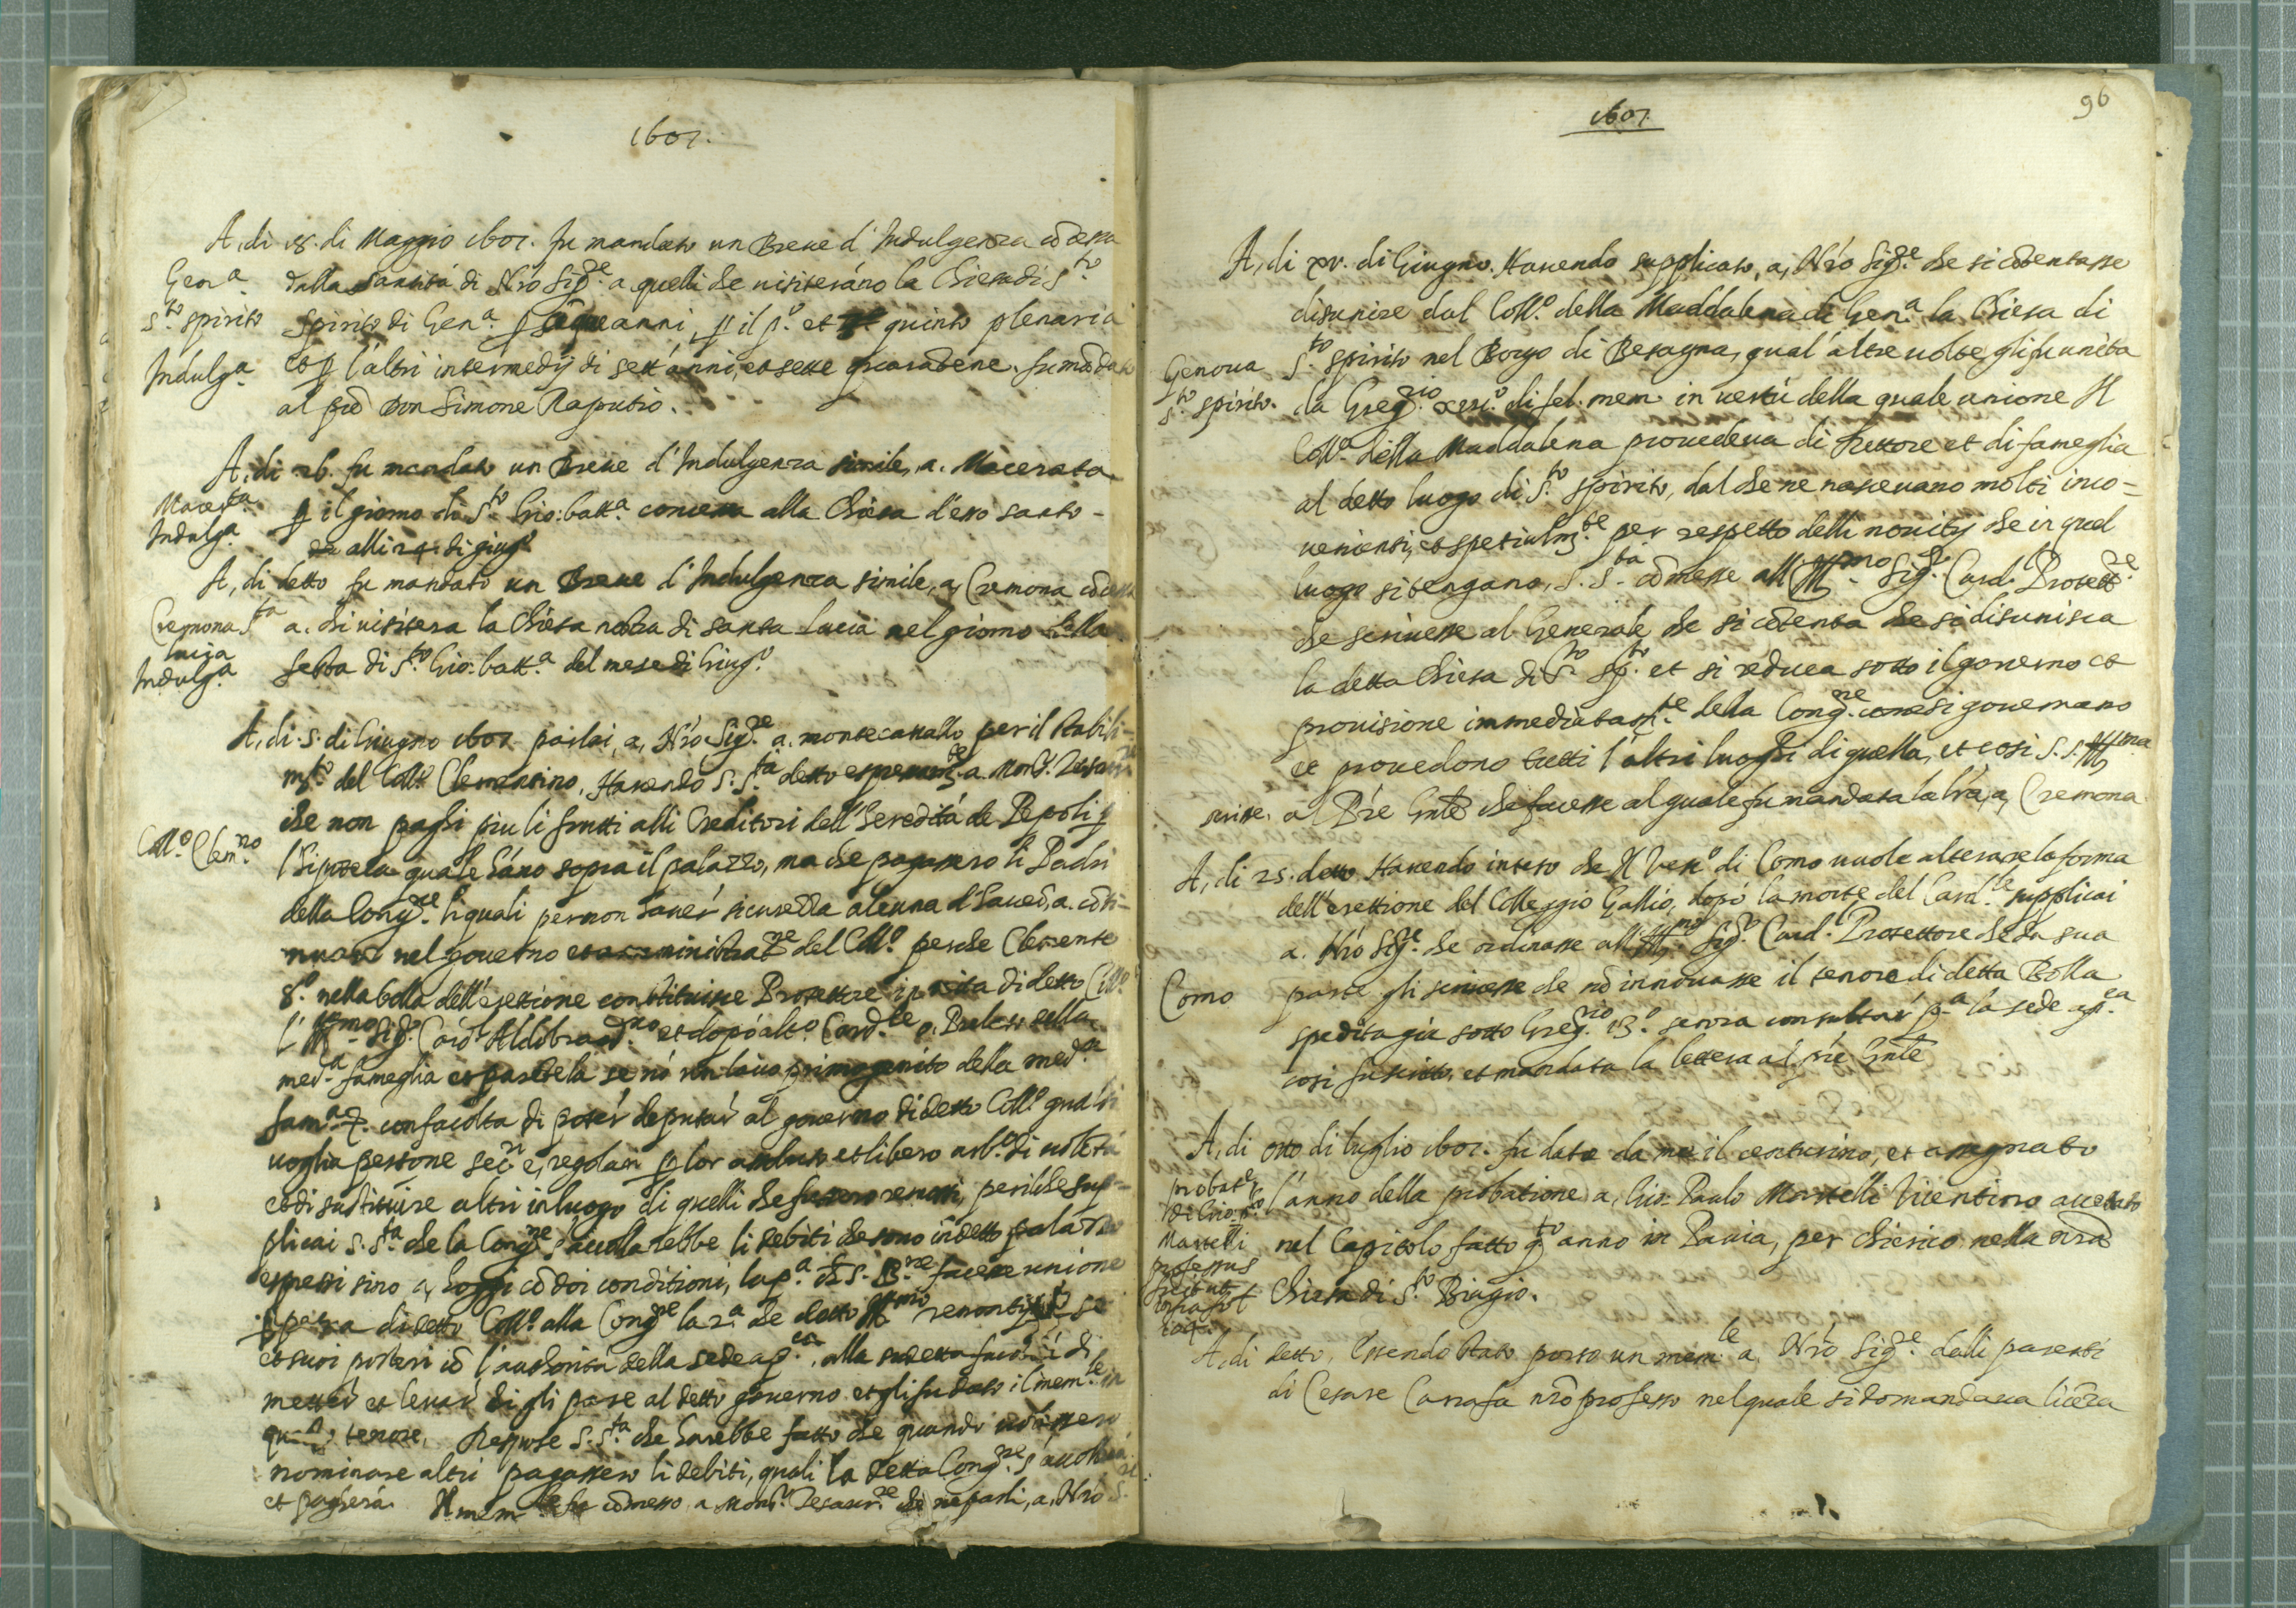 1601.
A, di 18. di Maggio 1601. fu mandato un Breve d'Indulgenza cõcessa
Gen.a
dalla santità di Nr̃o Sig.re a quelli che visiterãno la Chiesa di S.to
S.to spirito
Spirito di Gen.a anni, ꝑ il p.o et quinto plenaria
Indulg.a
et ꝑ l'altri intermedij di sett'anni, et sette quarãtene. fu mãdato
al pr̃e Don Simone Raputio.
A, di 26. fu mandato un Breve d'Indulgenza simile, a. Macerata
Macer.ta
Indulg.a
ꝑ il giorno di S.to Gio: batt.a concessa alla Chiesa d'esso santo
alli 24. di giug.o
A, di detto fu mandato un Breve d'Indulgenza simile, a, Cremona
Cremona S.ta
lucia
Indulg.a
a. chi visitera la Chiesa nostra di santa Lucia nel giorno della
festa di S.to Gio: batt.a del mese di Giug.o
A, di .5. di Giugno 1601. parlai, a, Nr̃o Sig.re a. montecavallo per il stabili-
m.to del Coll.o Clementino, Havendo S. S.ta detto a. Mons.r
che non paghi piu li frutti alli Creditori dell'heredità de Pepoli ꝑ
Coll.o Clem.no
l' quale hãno sopra il palazzo, ma che pagassero li Padri
della Cong.re li quali per non haver sicurezza alcuna d'haver, a. cõti-
nuare nel governo et aministrat.ne del Coll.o perche Clemente
8.o nella bolla dell'erettione constituisse Protettore in vita di detto Coll.o
l'Ill.mo Sig.r Card.l Aldobrand.no et dopò altro Card.le o, Prelato della
med.a fameglia et parentela se nò primogenito della med.a
fam.a con facolta di poter deputar al governo di detto Coll.o qualsi
voglia persone sec.ri e, regolari ꝑ lor assoluto et libero arb.o di volontà
et di sustituire altri in luogo di quelli che fussero remossi, perilche sup-
plicai S. S.ta che la Cong.ne s'accollarebbe li debiti che sono in detto palazzo
espressi sino a, hoggi cõ doi conditioni, la p.a ch S. B.ne facesse unione
ꝑpetua di detto Coll.o alla Cong.ne la 2.a che detto Ill.mo
et suoi posteri cõ l'authorità della sede ap.ca alla sudetta di
metter et levar chi gli pare al detto governo. et gli fu dato il mem.le in
tenore, Respose S. S.ta che harebbe fatto che quando volessero
nominare altri pagassero li debiti, quali la detta Cong.ne s'accollarà
et pagherà. Il mem.le fu cõmesso a Mons.r Tesaur.re che ne parli, a, Nr̃o S.
96
1601.
A, di xv. di Giugno. Havendo supplicato, a, Nr̃o Sig.re che si cõtentasse
disunire dal Coll.o della Maddalena di Gen.a la Chiesa di
Genova
S.to spirito.
S.to spirito nel Borgo di Besagna, qual'altre volte gli fu unita
da Greg.rio xiii.o di fel. mem. in vertù della quale unione Il
Coll.o della Maddalena provedeva di Rettore et di fameglia
al detto luogo di S.to spirito, dal che ne nascevano molti inco=
venienti, et spetialm.te per respetto delli novitij che in quel
luogo si tengano, S. S.ta cõmesse all'Ill.mo Sig.r Card.l Protett.re
che scrivesse al Generale che si cõtenta che si disunisca
la detta Chiesa di S.to Sp.to et si reduca sotto il governo et
provisione immediatam.te della Cong.ne come si governano
et provedono tutti l'altri luoghi di quella, et cosi S. S. Ill.ma
scrisse al Pr̃e Gnl̃e che facesse al quale fu mandata la lr̃a, a, Cremona
A, di 25. detto. Havendo inteso che Il Vesc.o di Como vuole alterare la forma
dell'erettione del Colleggio Gallio, dopò la morte del Card.le supplicai
a. Nr̃o Sig.re che ordinasse all'Ill.mo Sig.r Card.l Protettore che da sua
Como
parte gli scrivesse che nõ innovasse il tenore di detta Bolla
spedita già sotto Greg.rio 13.o senza consultar p.a la sede ap.ca
cosi fu scritto. et mandata la lettera al pr̃e Gnl̃e
A, di otto di luglio 1601. fu dato da me il centurino, et assegnato
probat.e
di Gio: P.lo
Mascelli
professus
l'anno della probatione, a, Gio: Paulo Mascelli Vicentino accettato
nel Capitolo fatto q.to anno in Pavia, per chierico nella nr̃a
Chiesa di S.to Biagio.
A, di detto, Essendo stato porto un mem.le a. Nr̃o Sig.re dalli parenti
di Cesare Carrafa nr̃o professo nel quale si domandava licẽza